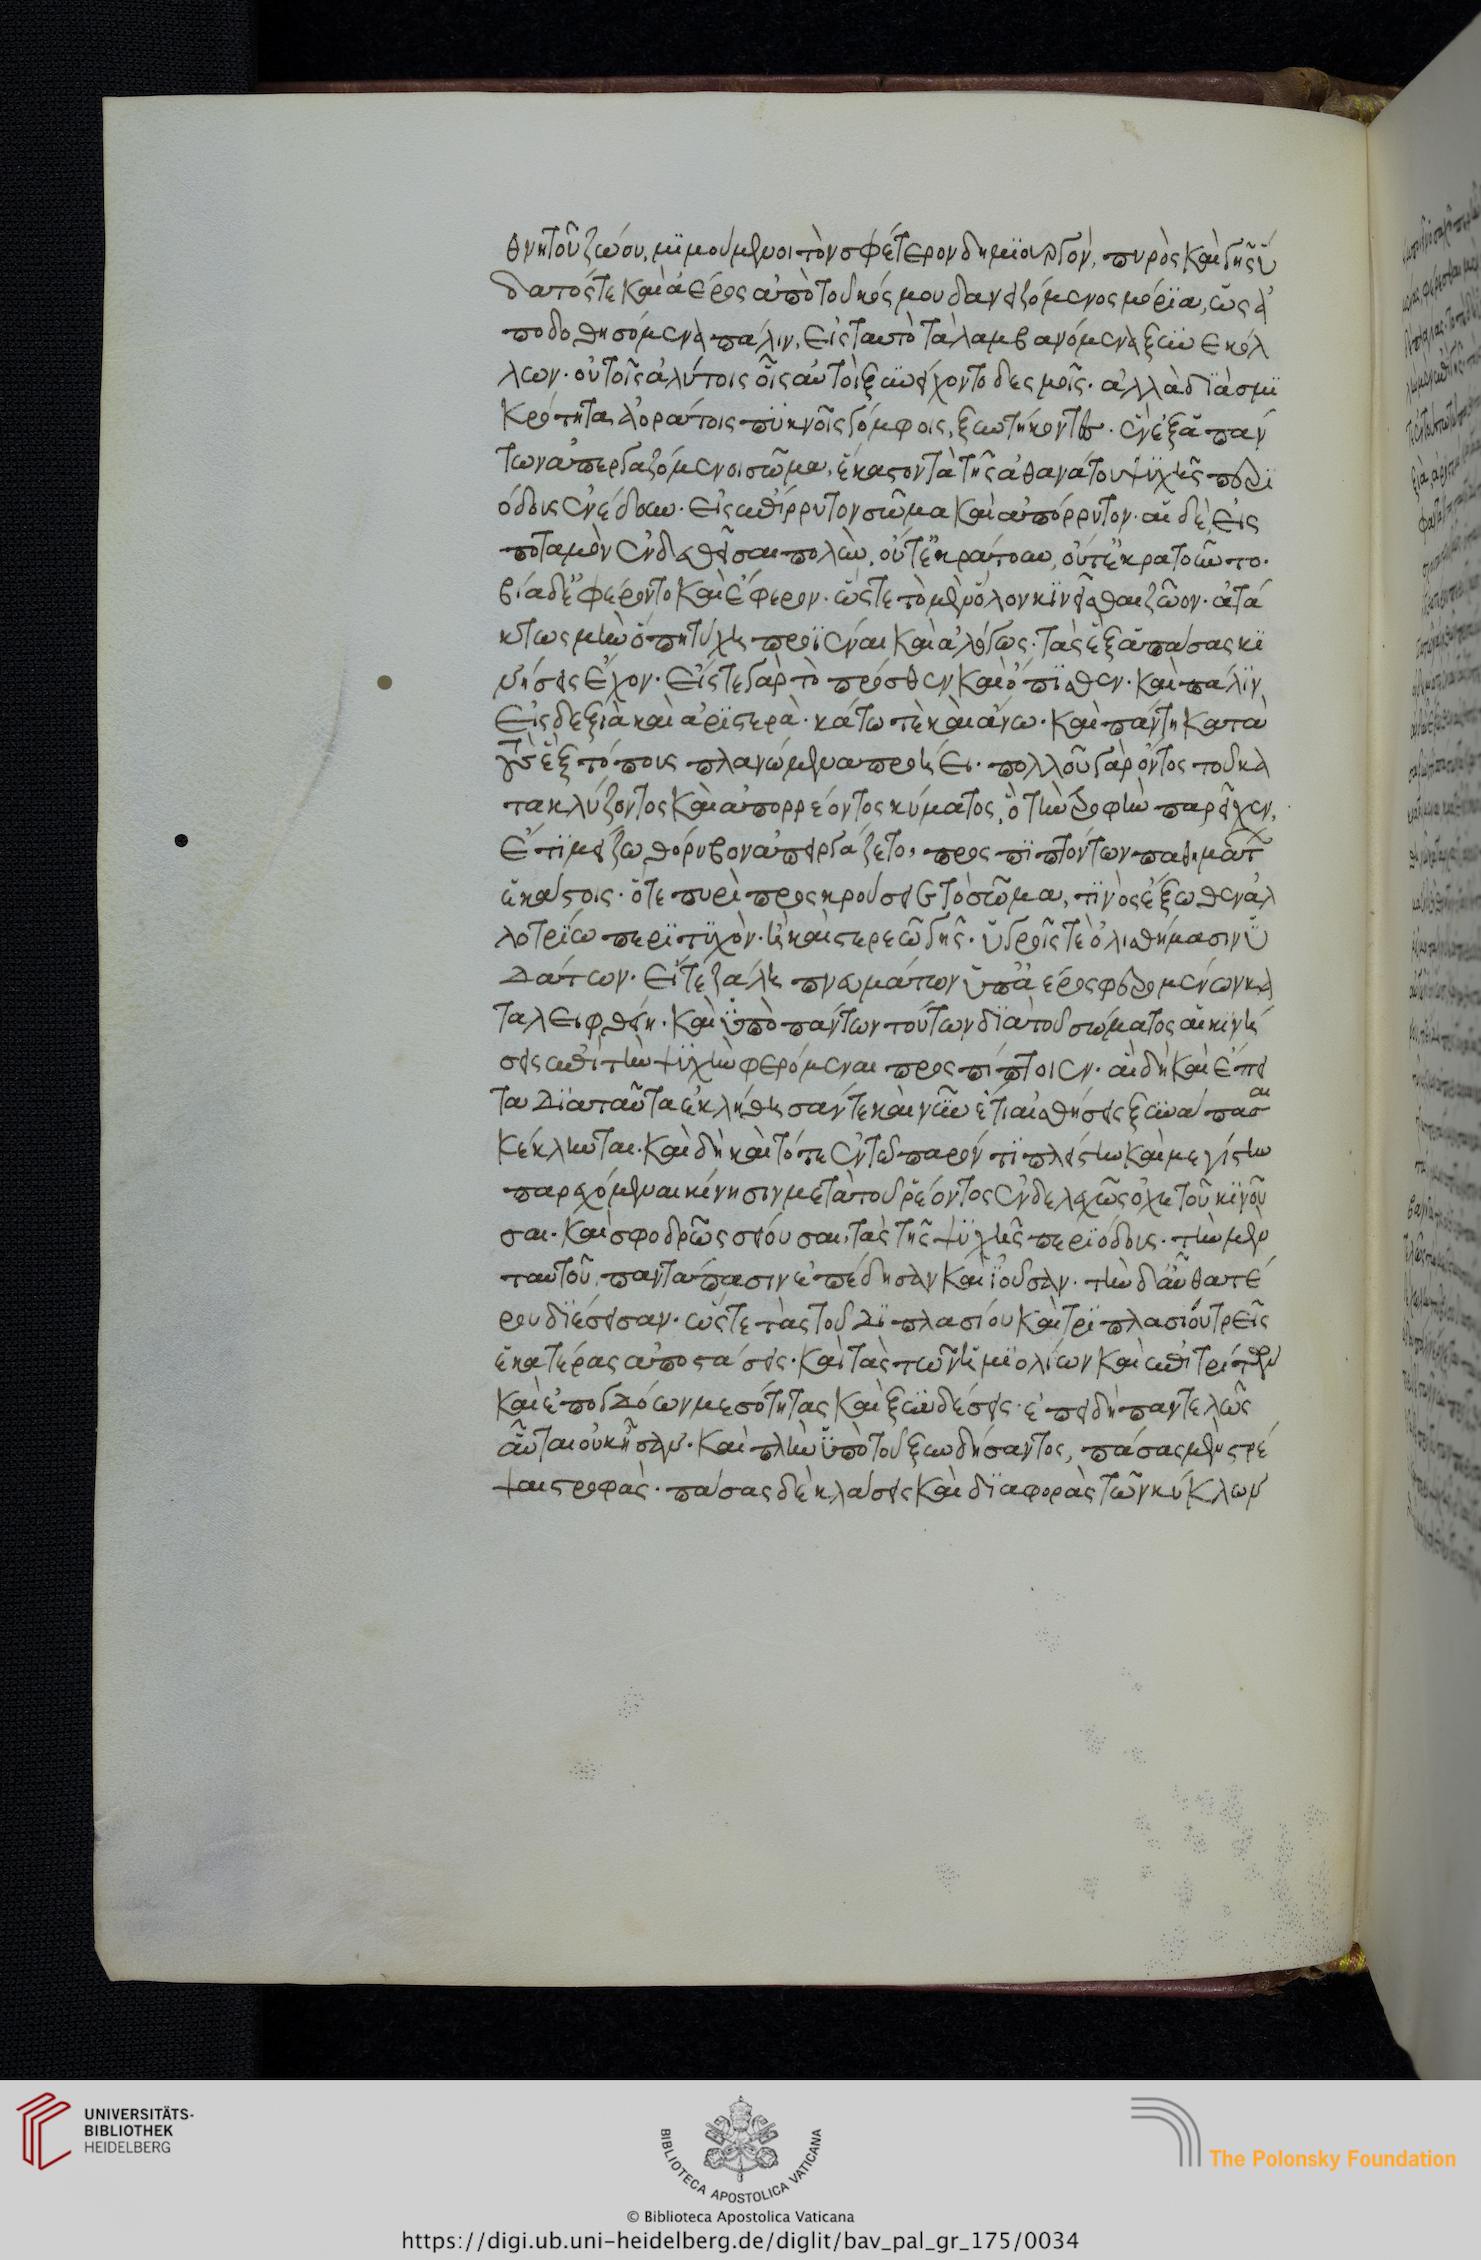 θνητοῦ ζώου, μϊμούμενοι τὸν σφέτερον δημϊουργόν, πυρὸς καὶ γῆς ὕ
δατός τε καὶ ἀέρος ἀπὸ τοῦ κόσμου δανειζόμενος μόρϊα, ὡς ἀ
ποδοθησόμενα πάλιν, εἰς ταυτὸ τὰ λαμβανόμενα ξυνεκόλ
λων· οὐ τοῖς ἀλύτοις οἷς αὐτοὶ ξυνείχοντο δεσμοῖς· ἀλλὰ διὰ σμϊ
κρότητα ἀοράτοις πϋκνοῖς γόμφοις, ξυντήκοντες· ἓν ἐξ ἁπάν
των ἀπεργαζόμενοι σῶμα, ἕκαστον τὰ τῆς ἀθανάτου ψϋχῆς περϊ
όδους ἐνέδουν· εἰς ἐπίρρυτον σῶμα καὶ ἀπόρρυτον· αἱ δὲ εἰς
ποταμὸν ἐνδεθεῖσαι πολὺν, οὔτ' ἐκράτουν, οὔτ' ἐκρατοῦντο·
βίᾳ δ' ἐφέροντο καὶ ἔφερον· ὥστε τὸ μὲν ὅλον κϊνεῖσθαι ζῶον· ἀτά
κτως μὴν ὅπη τύχη προϊέναι καὶ ἀλόγως· τὰς ἓξ ἁπάσας κϊ
νήσεις ἔχον· εἴς τε γὰρ τὸ πρόσθεν καὶ ὄπϊσθεν· καὶ πάλϊν
εἰς δεξιὰ καὶ ἀρϊστερὰ· κάτω τὲ καὶ ἄνω· καὶ πάντη κατὰ
τοὺς ἓξ τόπους πλανώμενα προήει· πολλοῦ γὰρ ὄντος τοῦ κα
τακλύζοντος καὶ ἀπορρέοντος κύματος, ὃ τὴν τροφὴν παρεῖχεν,
ἔτϊ μείζω θόρυβον ἀπειργάζετο, προσπϊπτόντων παθημάτ
ἑκάστοις· ὅτε πυρὶ προσκρούσειε τὸ σῶμα, τϊνὸς ἔξωθεν ἀλ
λοτρϊω περϊτϋχὸν· ἢ καὶ στερεῶ γῆς· ὑγροῖς τὲ ὀλισθήμασιν ὑ
δάτων· εἴτε ζάλη πνευμάτων ὑπ' ἀέρος φερομένων κα
ταλειφθείη· καὶ ὑπὸ πάντων τούτων δϊὰ τοῦ σώματος αἱ κϊνή
σεις ἐπὶ τὴν ψϋχὴν φερόμεναι προσπίπτοιεν· αἳ δὴ καὶ ἔπει
τα δϊὰ ταῦτα ἐκλήθησάν τε καὶ νῦν ἔτι αἰσθήσεις ξυνάπασαι
κέκληνται· καὶ δὴ καὶ τότε ἐν τῷ παρόν τϊ πλείστην καὶ μεγίστην
παρεχόμεναι κίνησιν μετὰ τοῦ ῥέοντος ἐνδελεχῶς ὀχετοῦ κϊνοῦ
σαι· καὶ σφοδρῶς σείουσαι, τὰς τῆς ψϋχῆς περϊόδους· τὴν μὲν
ταυτοῦ, παντάπασιν ἐπέδησαν καὶ ἰοῦσαν· τὴν δ' αὖ θατέ
ρου δϊέσεισαν· ὥστε τὰς τοῦ δϊπλασίου καὶ τρϊπλασίου τρεῖς
ἑκατέρας ἀποστάσεις· καὶ τὰς τῶν ἡμϊολίων καὶ ἐπιτρίτων
καὶ ἐπογδόων μεσότητας καὶ ξυνδέσεις· ἐπειδὴ παντελῶς
αὗται οὐκ ἦσαν· καὶ πλὴν ὑπὸ τοῦ ξυνδήσαντος, πάσας μὲν στρέ
ψαι στροφὰς· πάσας δὲ κλάσεις καὶ δϊαφορὰς τῶν κύκλων
UNIVERSITÄTS-
BIBLIOTHEK
HEIDELBERG
BIBLIOTECA APOSTOLICA VATICANA
The Polonsky Foundation
© Biblioteca Apostolica Vaticana
https://digi.ub.uni-heidelberg.de/diglit/bav_pal_gr_175/0034